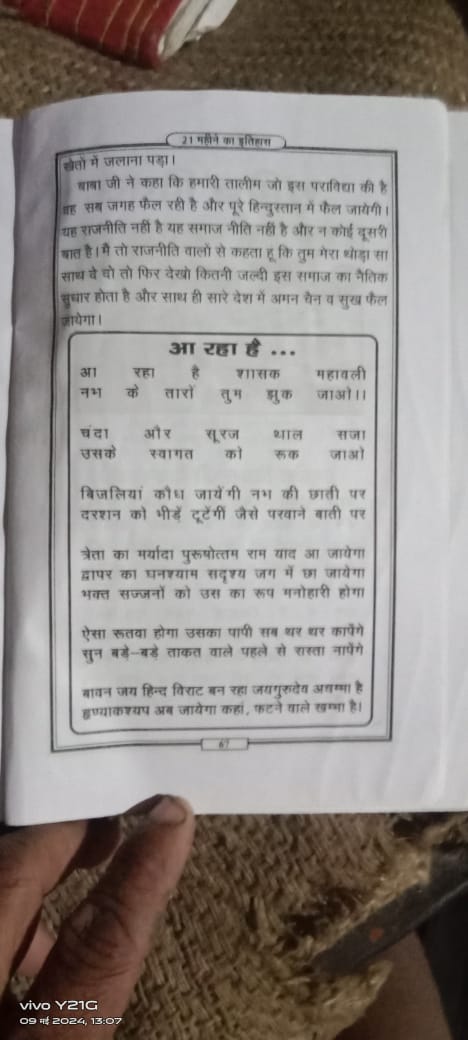 21 महीने का इतिहास
खेतों में जलाना पड़ा।
बाबा जी ने कहा कि हमारी तालीम जो इस पराविद्या की है
वह सब जगह फैल रही है और पूरे हिन्दुस्तान में फैल जायेगी।
यह राजनीति नहीं है यह समाज नीति नहीं है और न कोई दूसरी
बात है। मैं तो राजनीति वालो से कहता हू कि तुम मेरा थोड़ा सा
साथ दे दो तो फिर देखो कितनी जल्दी इस समाज का नैतिक
सुधार होता है और साथ ही सारे देश में अमन चैन व सुख फैल
जायेगा।
आ रहा है ...
आ रहा है शासक महावली
नभ के तारों तुम झुक जाओ।।
चंदा और सूरज थाल सजा
उसके स्वागत को रूक जाओ
बिजलियां कौध जायेंगी नभ की छाती पर
दरशन को भीड़ें टूटेंगीं जैसे परवाने बाती पर
त्रेता का मर्यादा पुरूषोत्तम राम याद आ जायेगा
द्वापर का घनश्याम सदृश्य जग में छा जायेगा
भक्त सज्जनों को उस का रूप मनोहारी होगा
ऐसा रूतवा होगा उसका पापी सब थर थर कापेंगे
सुन बड़े-बड़े ताकत वाले पहले से रास्ता नापेंगे
बावन जय हिन्द विराट बन रहा जयगुरूदेव अचम्भा है
हृण्याकश्यप अब जायेगा कहां, फटने वाले खम्भा है।
67
vivo Y21G
09 मई 2024, 13:07